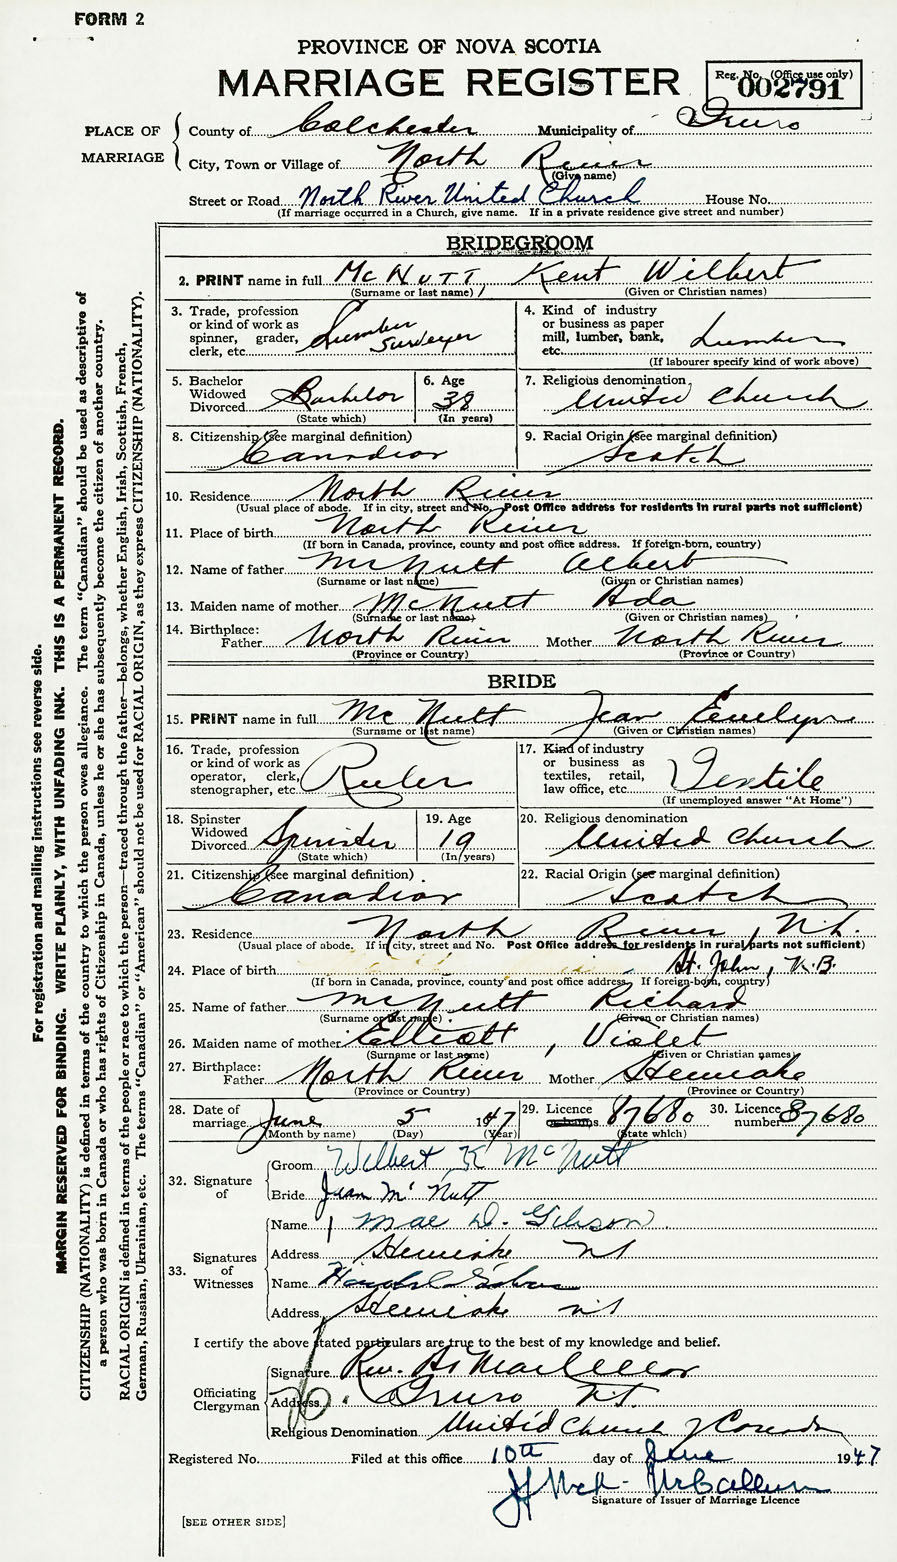 FORM 2
PROVINCE OF NOVA SCOTIA
MARRIAGE REGISTER
Reg. No. (Office use only)
002791
PLACE OF MARRIAGE
County of Colchester Municipality of Truro
City, Town or Village of North River
(Give name)
Street or Road North River United Church House No.
(If marriage occurred in a Church, give name. If in a private residence give street and number)
BRIDEGROOM
2. PRINT name in full McNutt, Kent Wilbert
(Surname or last name) (Given or Christian names)
3. Trade, profession or kind of work as spinner, grader, clerk, etc. Lumber Surveyer
4. Kind of industry or business as paper mill, lumber, bank, etc. Lumber
(If labourer specify kind of work above)
5. Bachelor Widowed Divorced Bachelor
(State which)
6. Age 38
(In years)
7. Religious denomination United Church
8. Citizenship (see marginal definition)
Canadian
9. Racial Origin (see marginal definition)
Scotch
10. Residence North River
(Usual place of abode. If in city, street and No. Post Office address for residents in rural parts not sufficient)
11. Place of birth North River
(If born in Canada, province, county and post office address. If foreign-born, country)
12. Name of father McNutt Albert
(Surname or last name) (Given or Christian names)
13. Maiden name of mother McNutt Ada
(Surname or last name) (Given or Christian names)
14. Birthplace:
Father North River Mother North River
(Province or Country) (Province or Country)
BRIDE
15. PRINT name in full McNutt Jean Evelyn
(Surname or last name) (Given or Christian names)
16. Trade, profession or kind of work as operator, clerk, stenographer, etc. Ruler
17. Kind of industry or business as textiles, retail, law office, etc. Textile
(If unemployed answer "At Home")
18. Spinster Widowed Divorced Spinster
(State which)
19. Age 19
(In years)
20. Religious denomination
United Church
21. Citizenship (see marginal definition)
Canadian
22. Racial Origin (see marginal definition)
Scotch
23. Residence North River, N.S.
(Usual place of abode. If in city, street and No. Post Office address for residents in rural parts not sufficient)
24. Place of birth St. John, N.B.
(If born in Canada, province, county and post office address. If foreign-born, country)
25. Name of father McNutt Richard
(Surname or last name) (Given or Christian names)
26. Maiden name of mother Elliott, Violet
(Surname or last name) (Given or Christian names)
27. Birthplace:
Father North River Mother Stewiacke
(Province or Country) (Province or Country)
28. Date of marriage June 5 1947
(Month by name) (Day) (Year)
29. Licence 87680
(State which)
30. Licence number 87680
32. Signature of
Groom Wilbert K McNutt
Bride Jean McNutt
33. Signatures of Witnesses
Name Mae D. Gibson
Address Stewiacke NS
Name
Address Stewiacke NS
I certify the above stated particulars are true to the best of my knowledge and belief.
Officiating Clergyman
Signature Rev.
Address Truro N.S.
Religious Denomination United Church of Canada
Registered No. Filed at this office 10th day of June 1947
McCallum
Signature of Issuer of Marriage Licence
[SEE OTHER SIDE]
For registration and mailing instructions see reverse side.
MARGIN RESERVED FOR BINDING. WRITE PLAINLY, WITH UNFADING INK. THIS IS A PERMANENT RECORD.
CITIZENSHIP (NATIONALITY) is defined in terms of the country to which the person owes allegiance. The term "Canadian" should be used as descriptive of
a person who was born in Canada or who has rights of Citizenship in Canada, unless he or she has subsequently become the citizen of another country.
RACIAL ORIGIN is defined in terms of the people or race to which the person—traced through the father—belongs, whether English, Irish, Scottish, French,
German, Russian, Ukrainian, etc. The terms "Canadian" or "American" should not be used for RACIAL ORIGIN, as they express CITIZENSHIP (NATIONALITY).